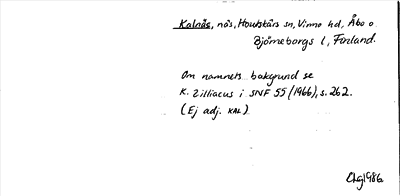 Kalnäs, näs, Houtskärs sn, Virmo hd, Åbo o.
Björneborgs l, Finland.
Om namnets bakgrund se
K. Zilliacus i SNF 55 (1966), s. 262.
(Ej adj. KAL)
1986